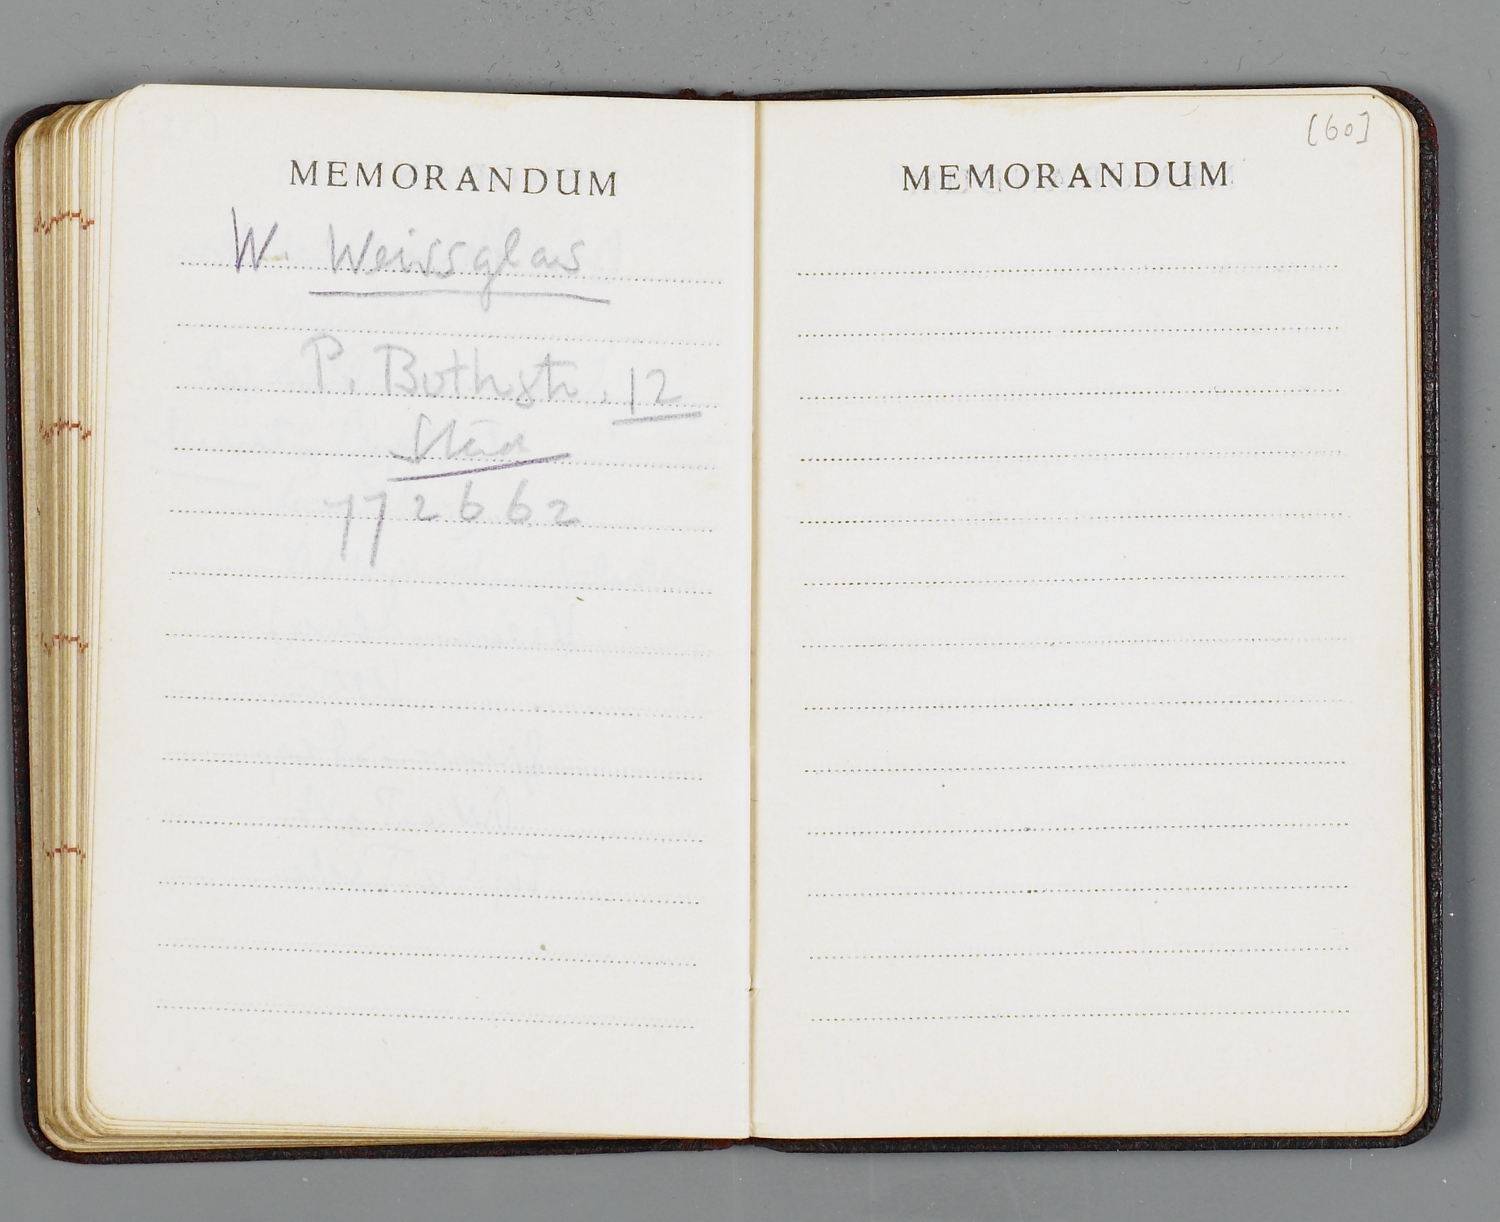 MEMORANDUM
W. Weissglas
P. Bothstr. 12
772662
MEMORANDUM
[60]